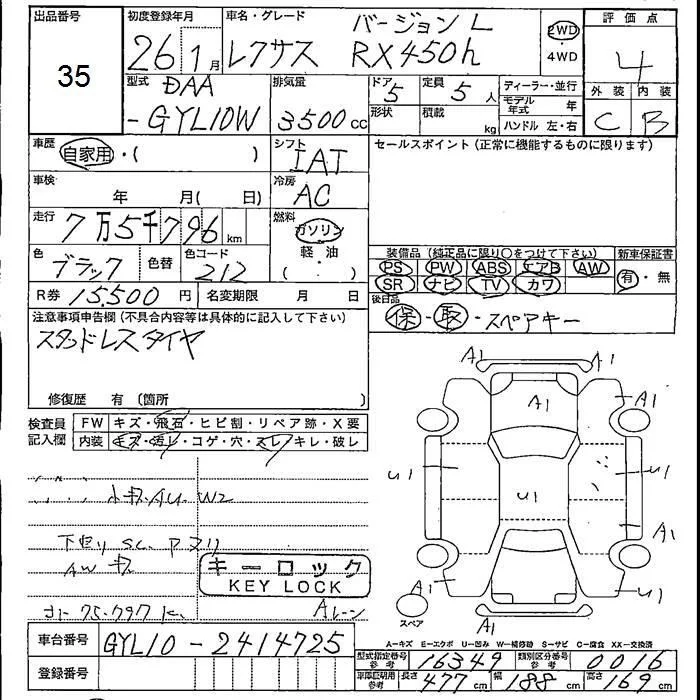 出品番号
35
初度登録年月
26年 1月
車名・グレード
バージョン L
レクサス RX450h
2WD
4WD
評価点
4
外装 内装
C B
型式 DAA
-GYL10W
排気量
3500cc
ドア 5
形状
定員 5人
積載 kg
ディーラー・並行
モデル年式 年
ハンドル 左・右
車歴
自家用・( )
シフト
IAT
セールスポイント (正常に機能するものに限ります)
車検
年 月( 日)
冷房
AC
走行
7万5千796km
燃料
ガソリン
軽・油
( ・ )
色
ブラック
色替
色コード
212
装備品 (純正品に限り○をつけて下さい)
PS PW ABS エアB AW
SR ナビ TV カワ
新車保証書
有・無
R券 15,500円
名変期限 月 日
後日品
保・取・スペアキー
注意事項申告欄 (不具合内容等は具体的に記入して下さい)
スタッドレスタイヤ
修復歴 有 〔箇所 〕
検査員記入欄
FW キズ・飛石・ヒビ割・リペア跡・X要
内装 キズ・汚レ・コゲ・穴・スレ・キレ・破レ
AW キズ
キーロック
KEY LOCK
75.797k
Aレーン
A1 A1
A1 A1
U1 U1 U1
A1
A1 U1
A1
スペア
A-キズ E-エクボ U-凹み W-補修跡 S-サビ C-腐食 XX-交換済
車台番号
GYL10-2414725
登録番号
型式指定番号 参考
16349
類別区分番号 参考
0016
車庫証明用 参考
長さ 477cm 幅 188cm 高さ 169cm